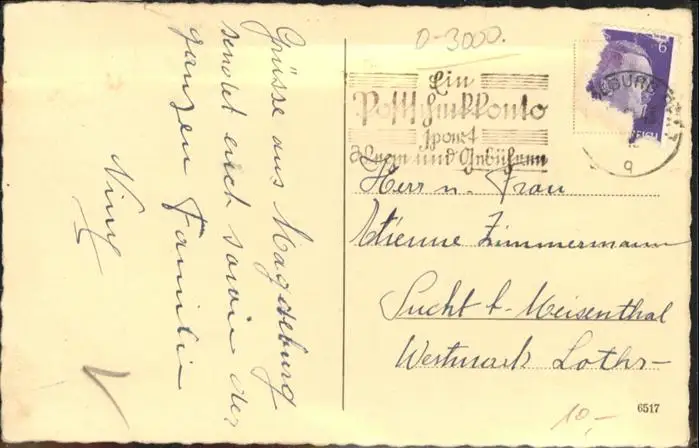 Grüsse aus Magdeburg
sendet euch sowie der
ganzen Familie
D-3000.
Ein
Postscheckkonto
spart
Wege und Gebühren
6
REICH
g
Herr u. Frau
Etienne Zimmermann
Sucht b. Meisenthal
Westmark Lothr-
6517
10,-